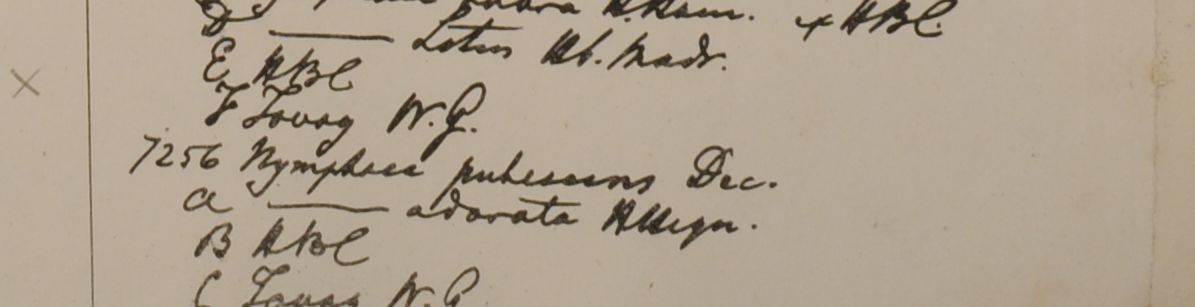 D ——— rubra H. Ham. & HBC
E ——— Lotus Hb. Madr.
E HBC
F Tavoy W.G.
7256 Nymphaea pubescens Dec.
a ——— odorata HHeyn.
B HBC
C Tavoy W.G